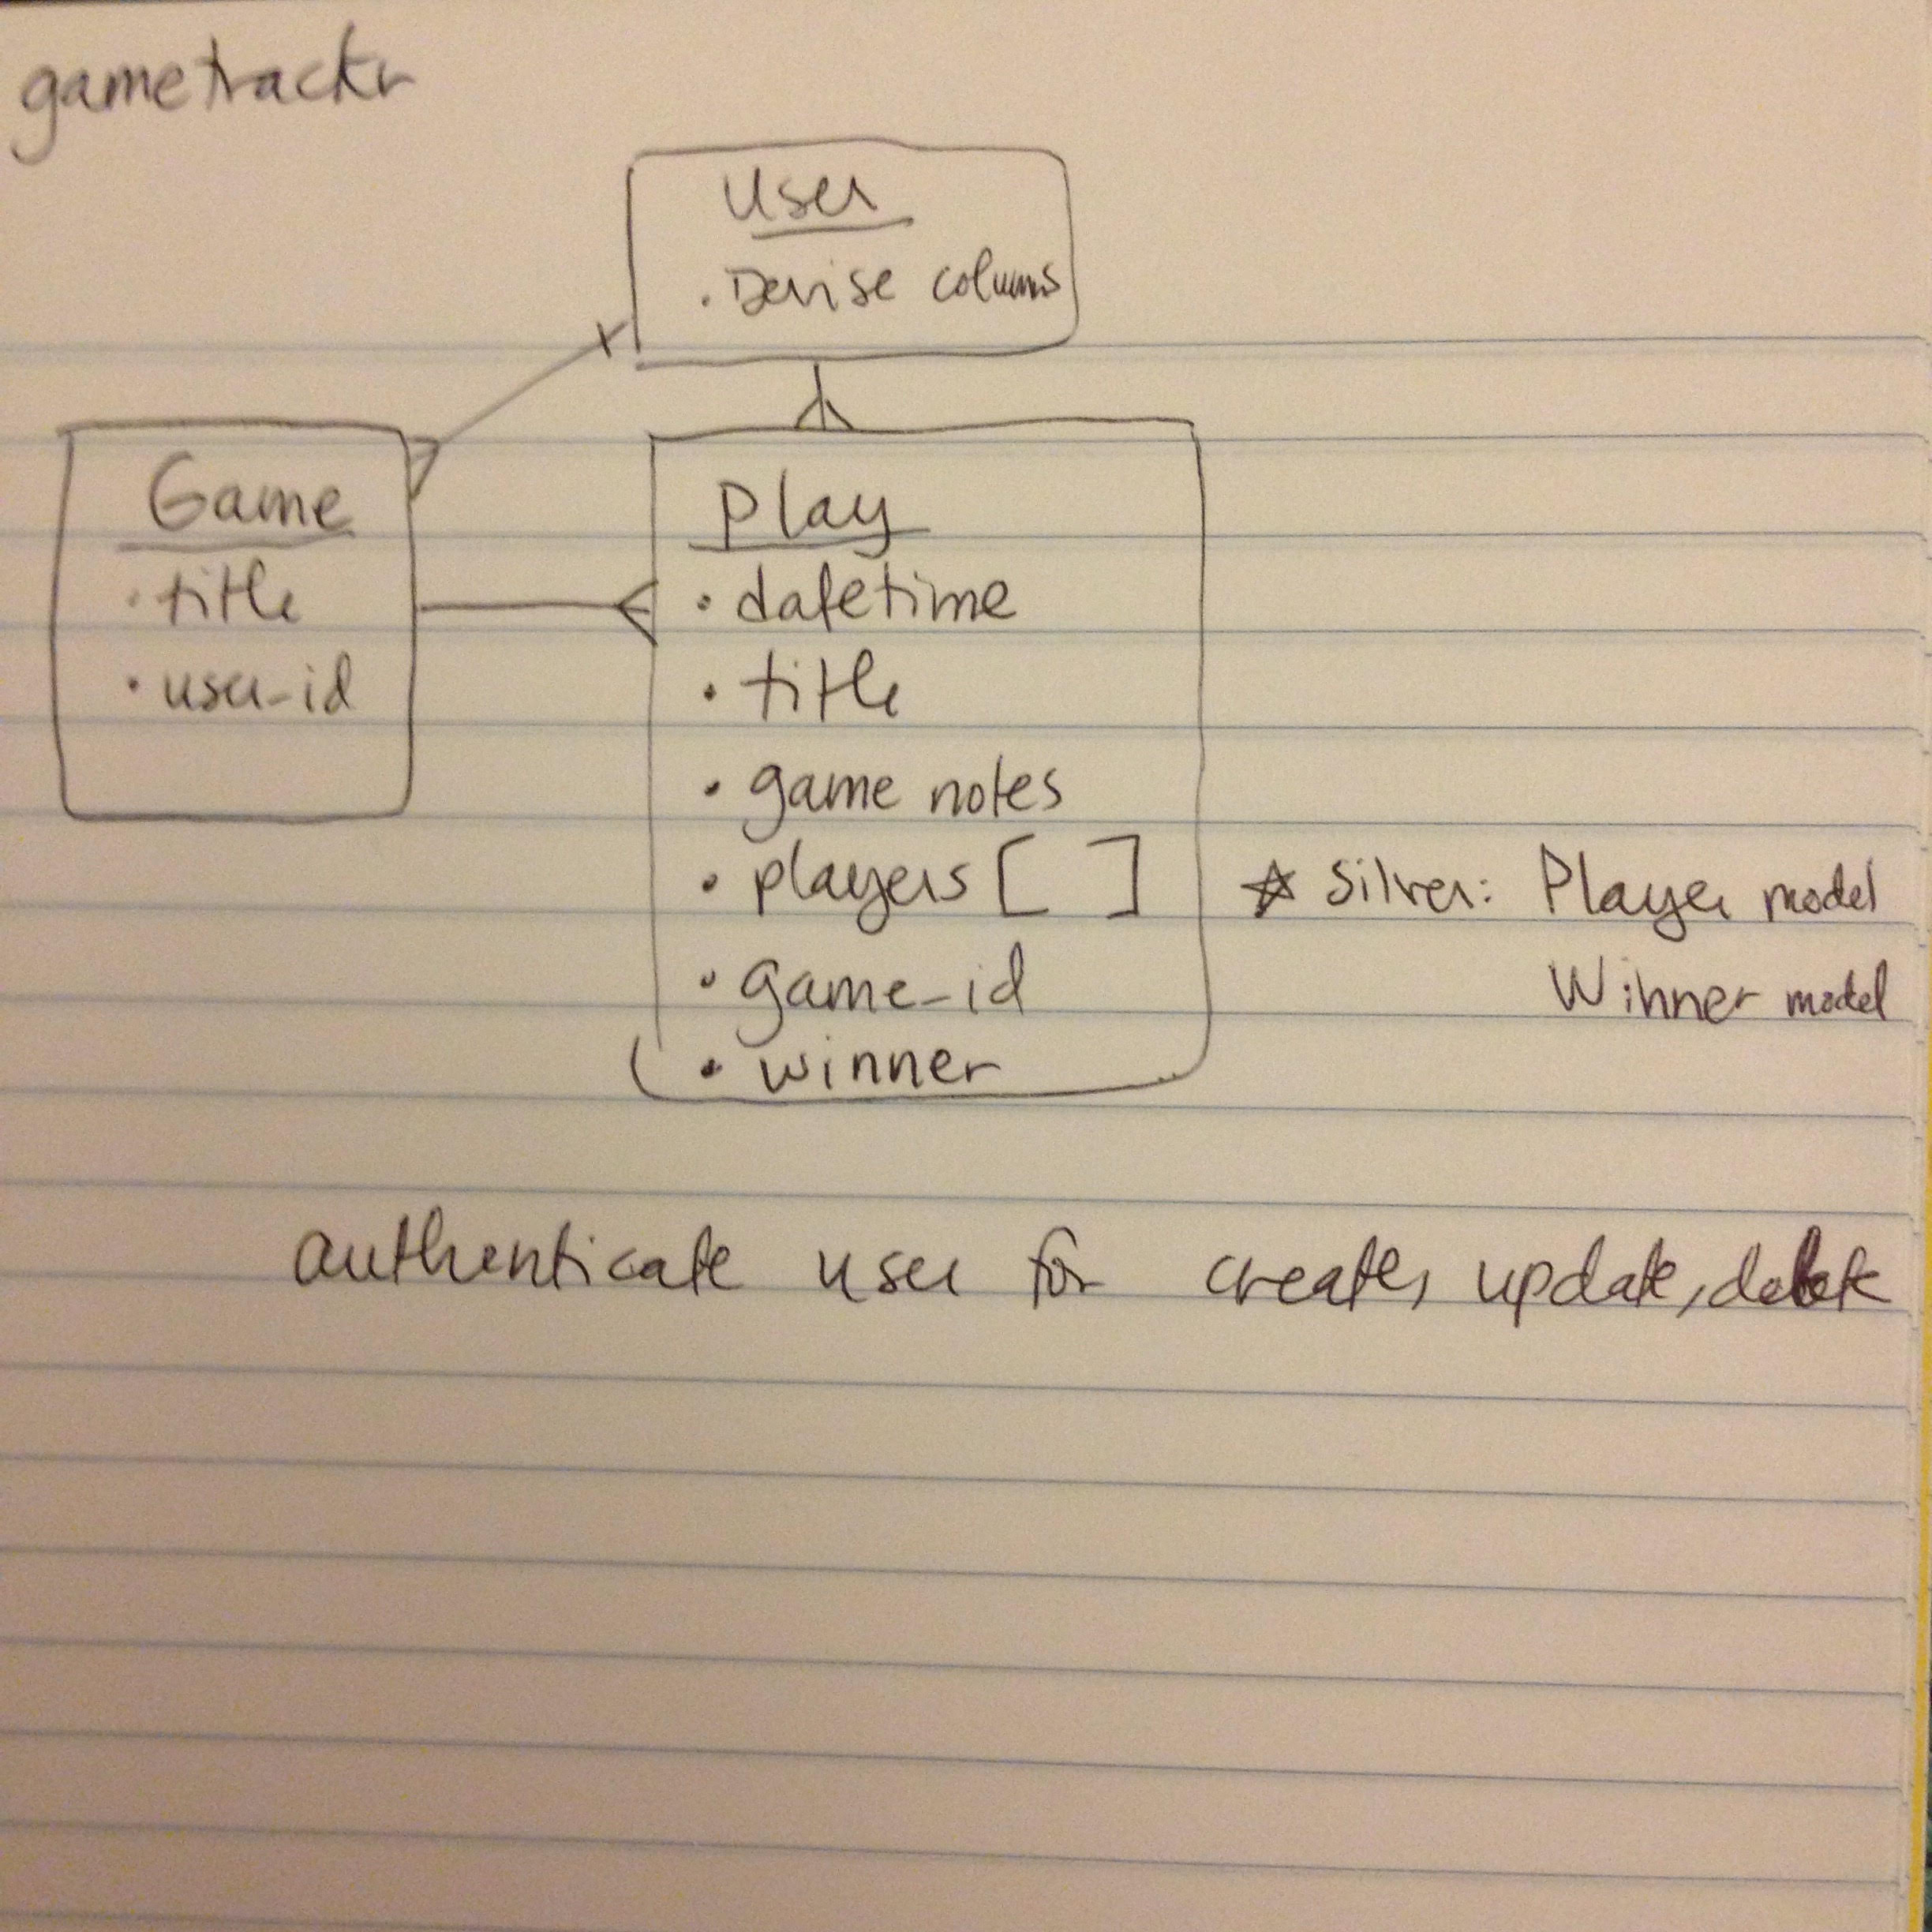 gametrackr
User
· Devise colums
Game
· title
· user-id
Play
· datetime
· title
· game notes
· players [ ]
· game-id
· winner
☆ Silver: Player model
Winner model
authenticate user for create, update, delete